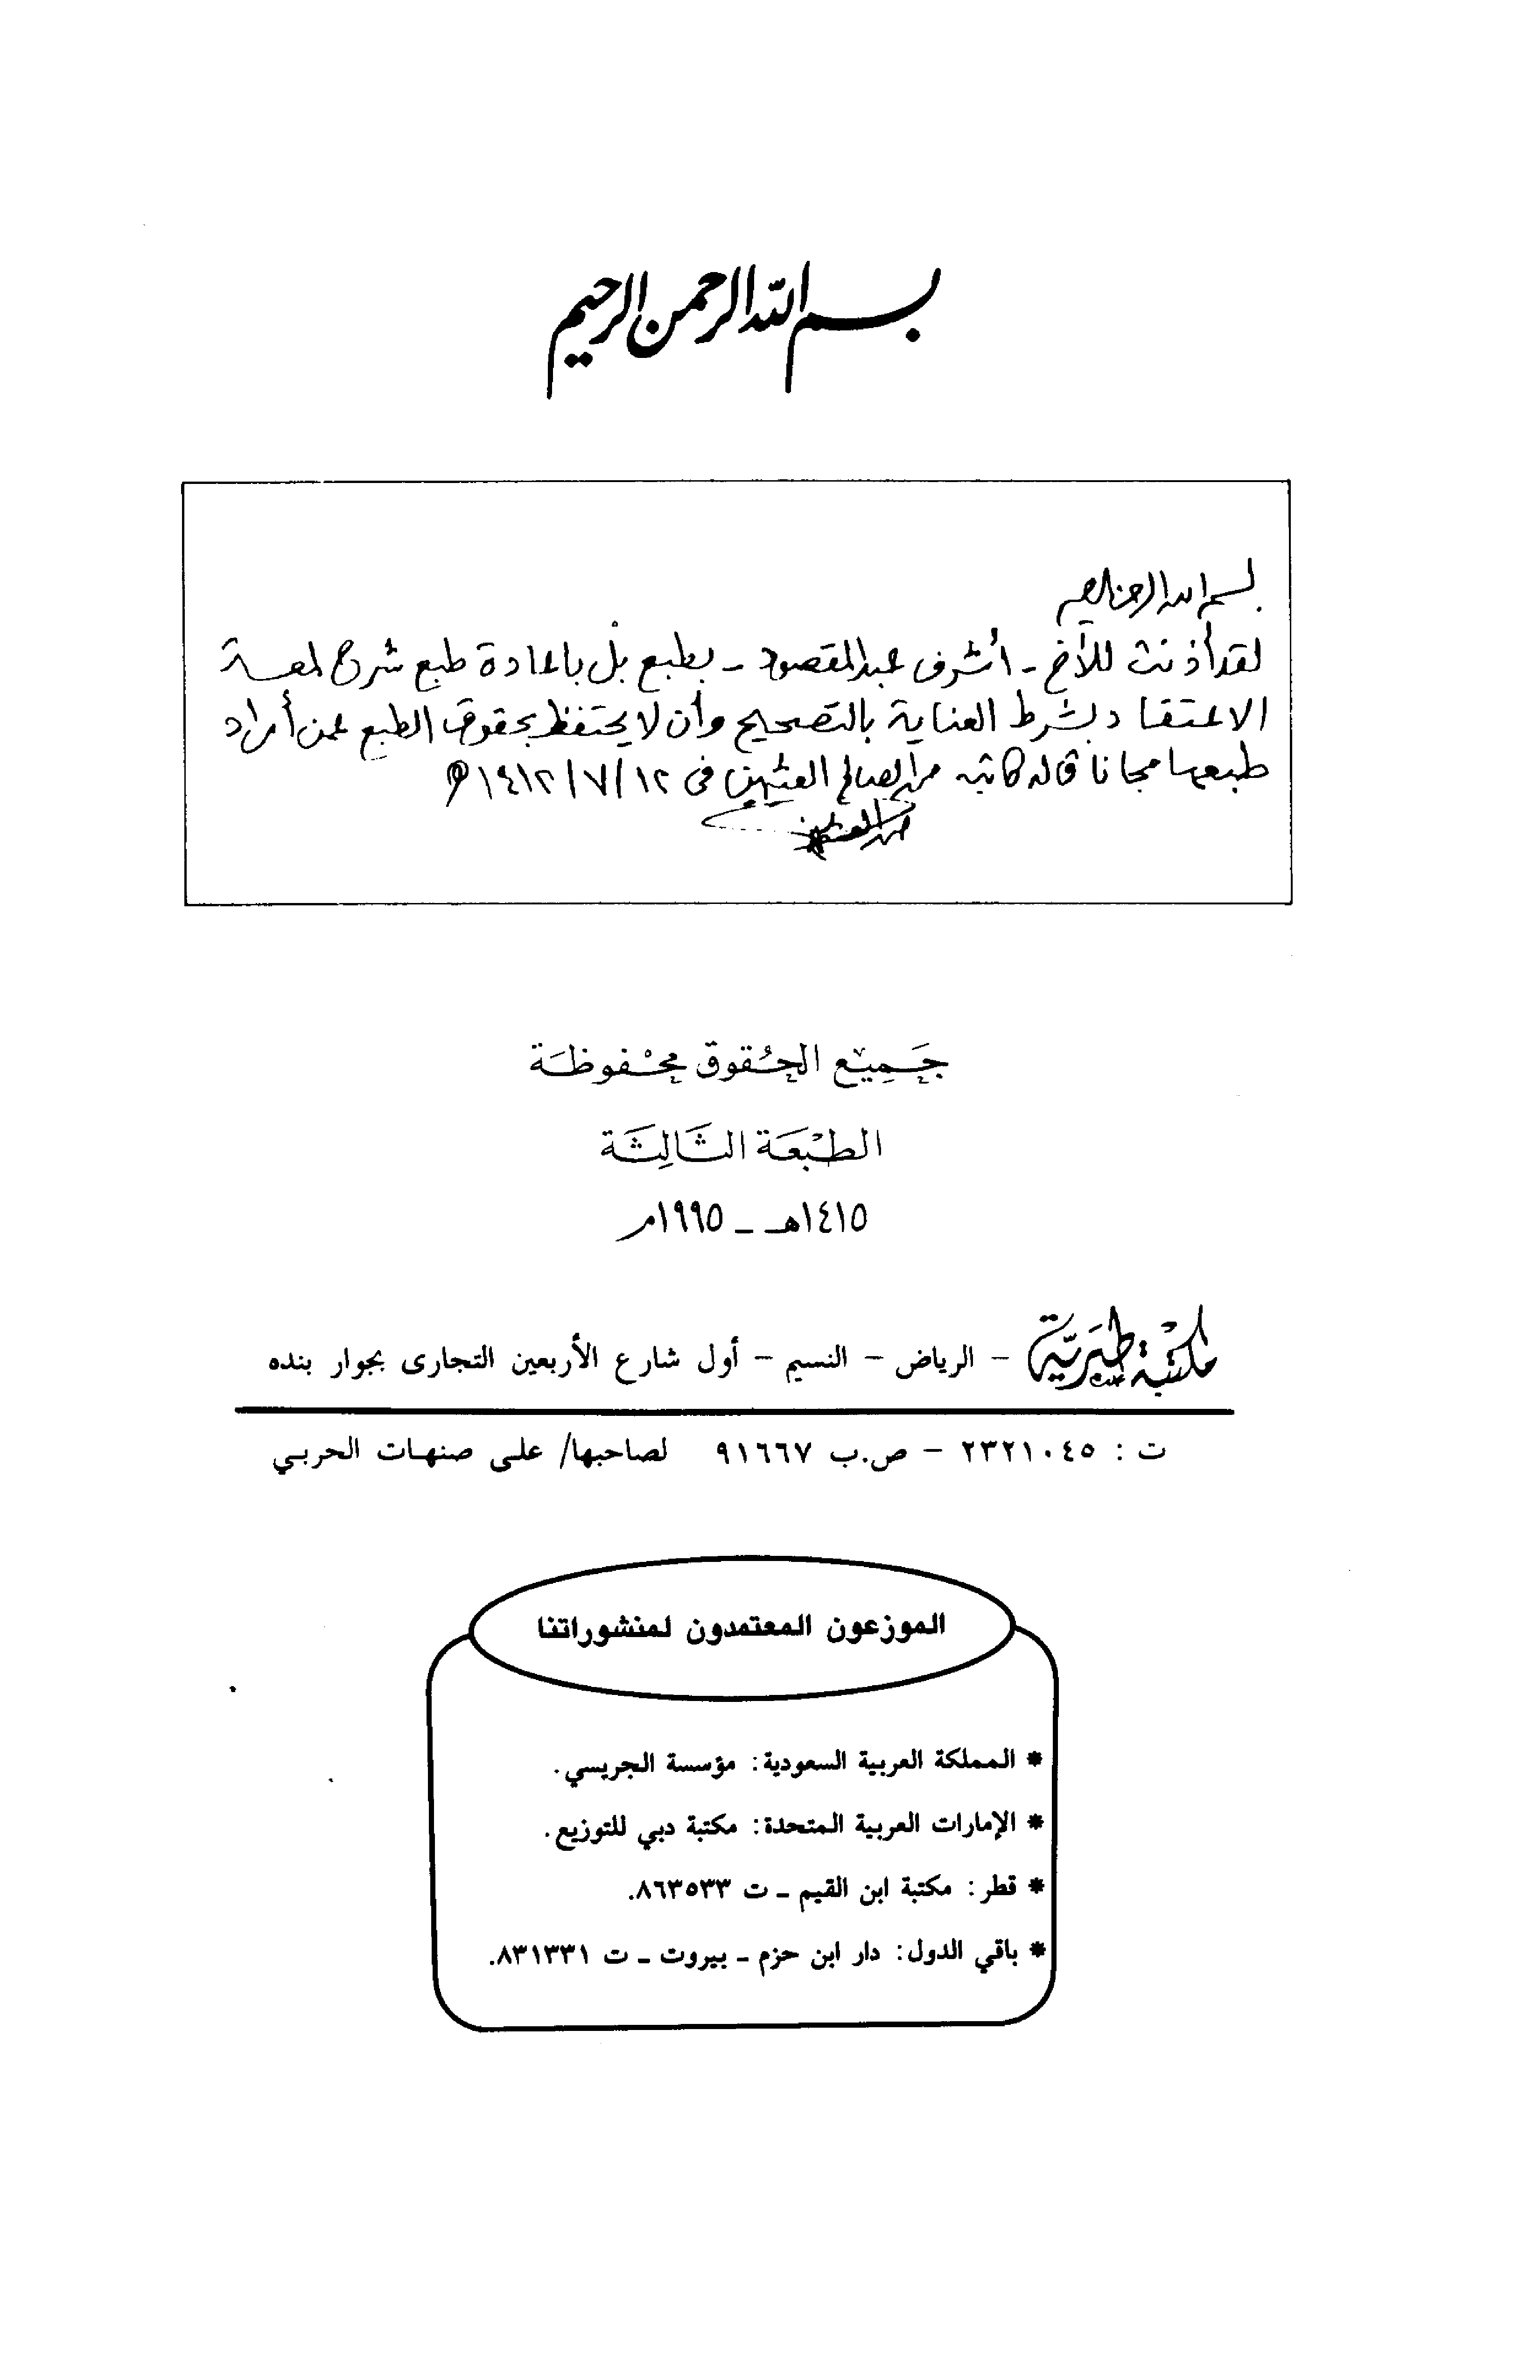 بسم الله الرحمن الرحيم
بسم الله الرحمن الرحيم
لقد أذنت للأخ - أشرف عبد المقصود - بطبع بل باعادة طبع شرح لمعة
الاعتقاد بشرط العناية بالتصحيح وأن لا يحتفظ بحقوق الطبع عمن أراد
طبعها مجانا قاله كاتبه محمد الصالح العثيمين في ١٢/٧/١٤١٢هـ
محمد العثيمين
جَمِيْع الحُقوق محْفوظَة
الطبْعَة الثَالِثَة
١٤١٥هـ - ١٩٩٥م
مكتبة طبريّة - الرياض - النسيم - أول شارع الأربعين التجارى بجوار بنده
ت : ٢٣٢١٠٤٥ - ص.ب ٩١٦٦٧ لصاحبها/ على صنهات الحربي
الموزعون المعتمدون لمنشوراتنا
* المملكة العربية السعودية: مؤسسة الجريسي.
* الإمارات العربية المتحدة: مكتبة دبي للتوزيع.
* قطر: مكتبة ابن القيم - ت ٨٦٣٥٣٣.
* باقي الدول: دار ابن حزم - بيروت - ت ٨٣١٣٣١.